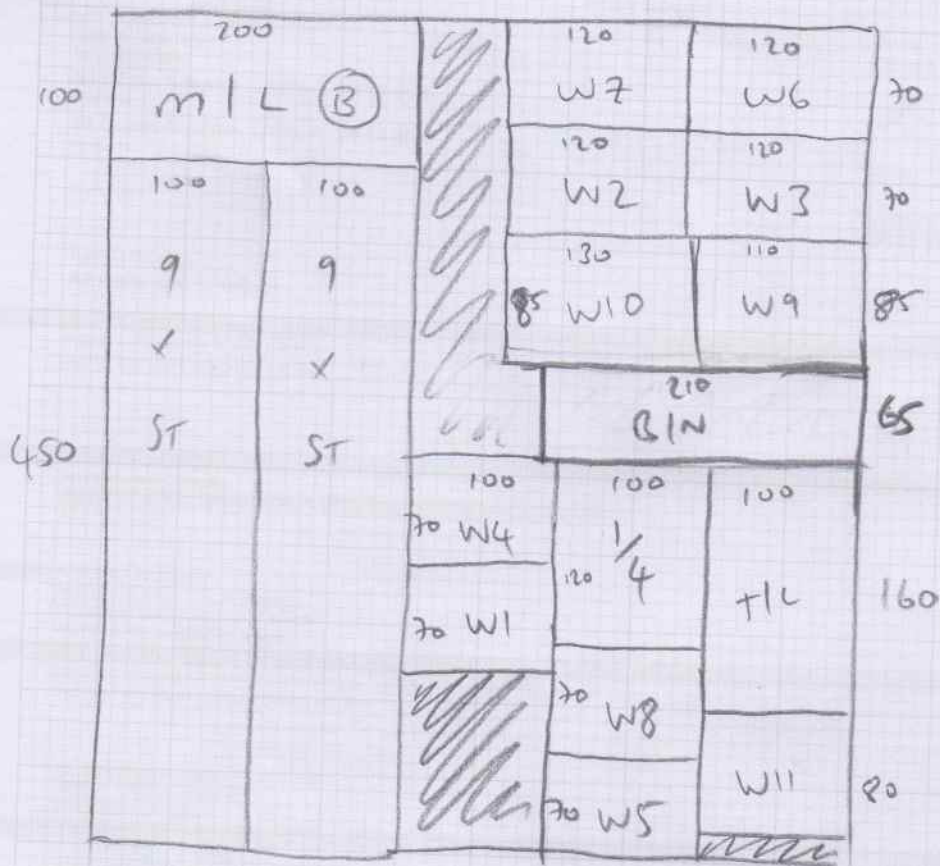 200
100 M/L B
100 100
9 9
x x
ST ST
450
120 120
W7 W6 70
120 120
W2 W3 70
130 110
85 W10 W9 85
210
BIN 65
100 100 100
70 W4 1/4
120 T/L 160
70 W1
70 W8
W11 80
70 W5